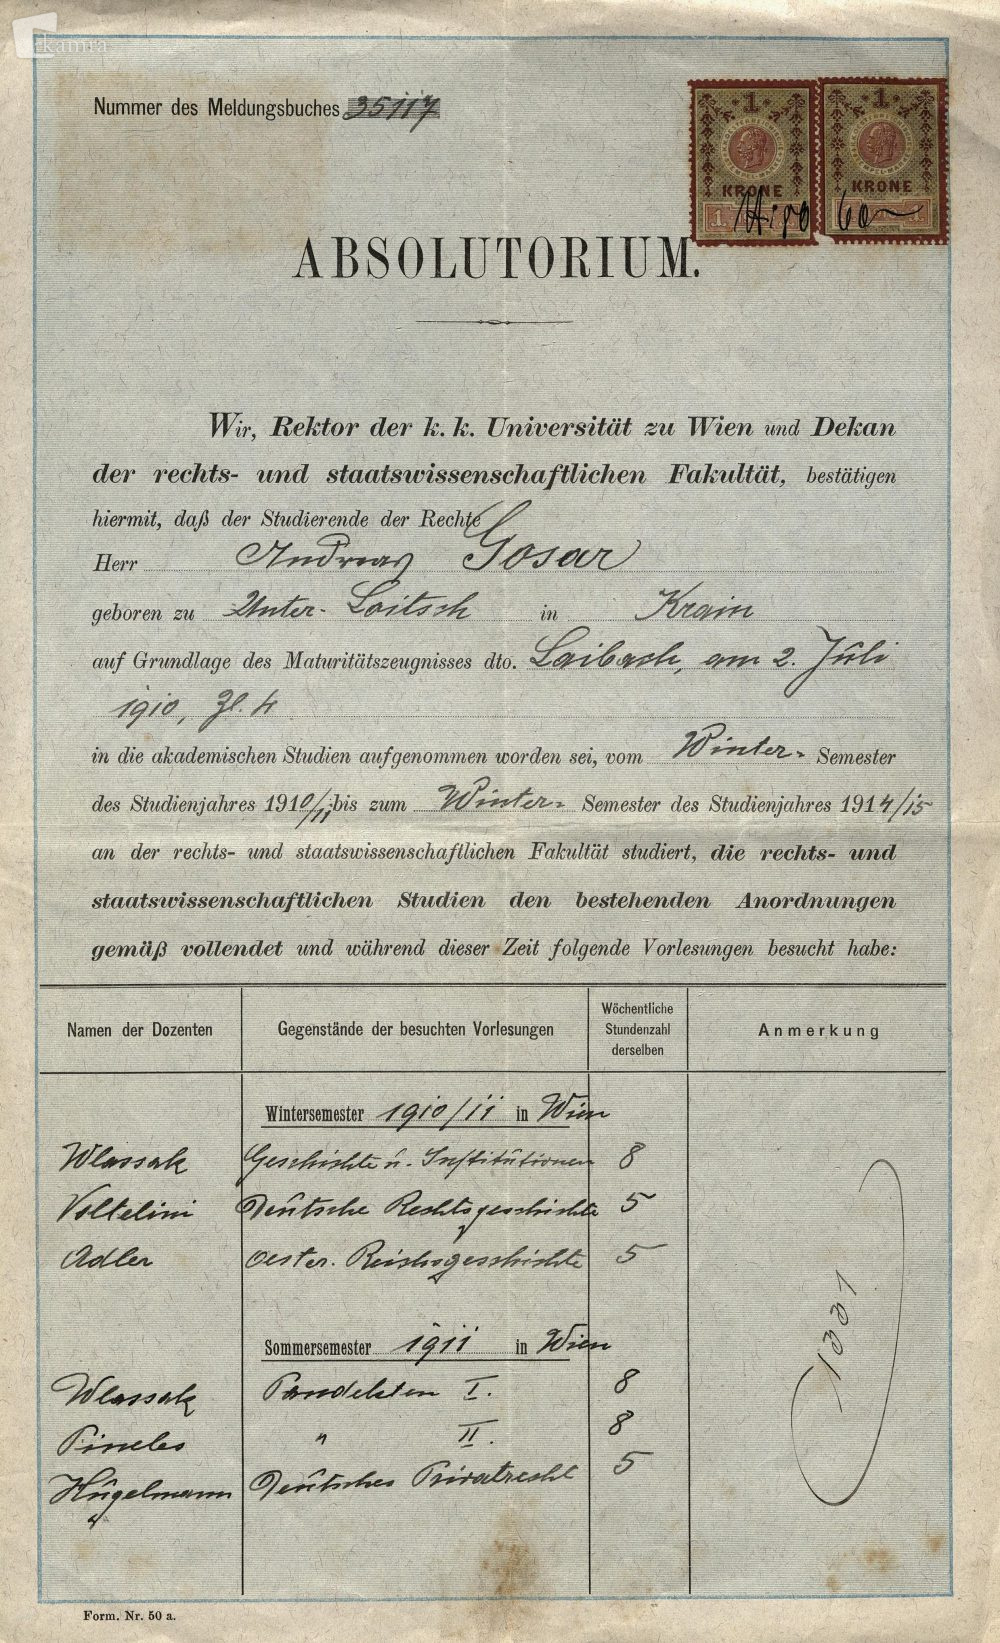 kamra
Nummer des Meldungsbuches 35117
1 KRONE 1
1 KRONE 1
ABSOLUTORIUM.
Wir, Rektor der k. k. Universität zu Wien und Dekan
der rechts- und staatswissenschaftlichen Fakultät, bestätigen
hiermit, daß der Studierende der Rechte
Herr Andreas Gosar
geboren zu Unter-Loitsch in Krain
auf Grundlage des Maturitätszeugnisses dto. Laibach, am 2. Juli
1910, Zl. 4
in die akademischen Studien aufgenommen worden sei, vom Winter- Semester
des Studienjahres 1910/11 bis zum Winter- Semester des Studienjahres 1914/15
an der rechts- und staatswissenschaftlichen Fakultät studiert, die rechts- und
staatswissenschaftlichen Studien den bestehenden Anordnungen
gemäß vollendet und während dieser Zeit folgende Vorlesungen besucht habe:
Namen der Dozenten Gegenstände der besuchten Vorlesungen Wöchentliche Stundenzahl derselben Anmerkung
Wintersemester 1910/11 in Wien
Wlassak Geschichte u. Institutionen 8
Voltelini Deutsche Rechtsgeschichte 5
Adler Oester. Reichsgeschichte 5
Sommersemester 1911 in Wien
Wlassak Pandekten I. 8
Pineles " II. 8
Hugelmann Deutsches Privatrecht 5
1331
Form. Nr. 50 a.